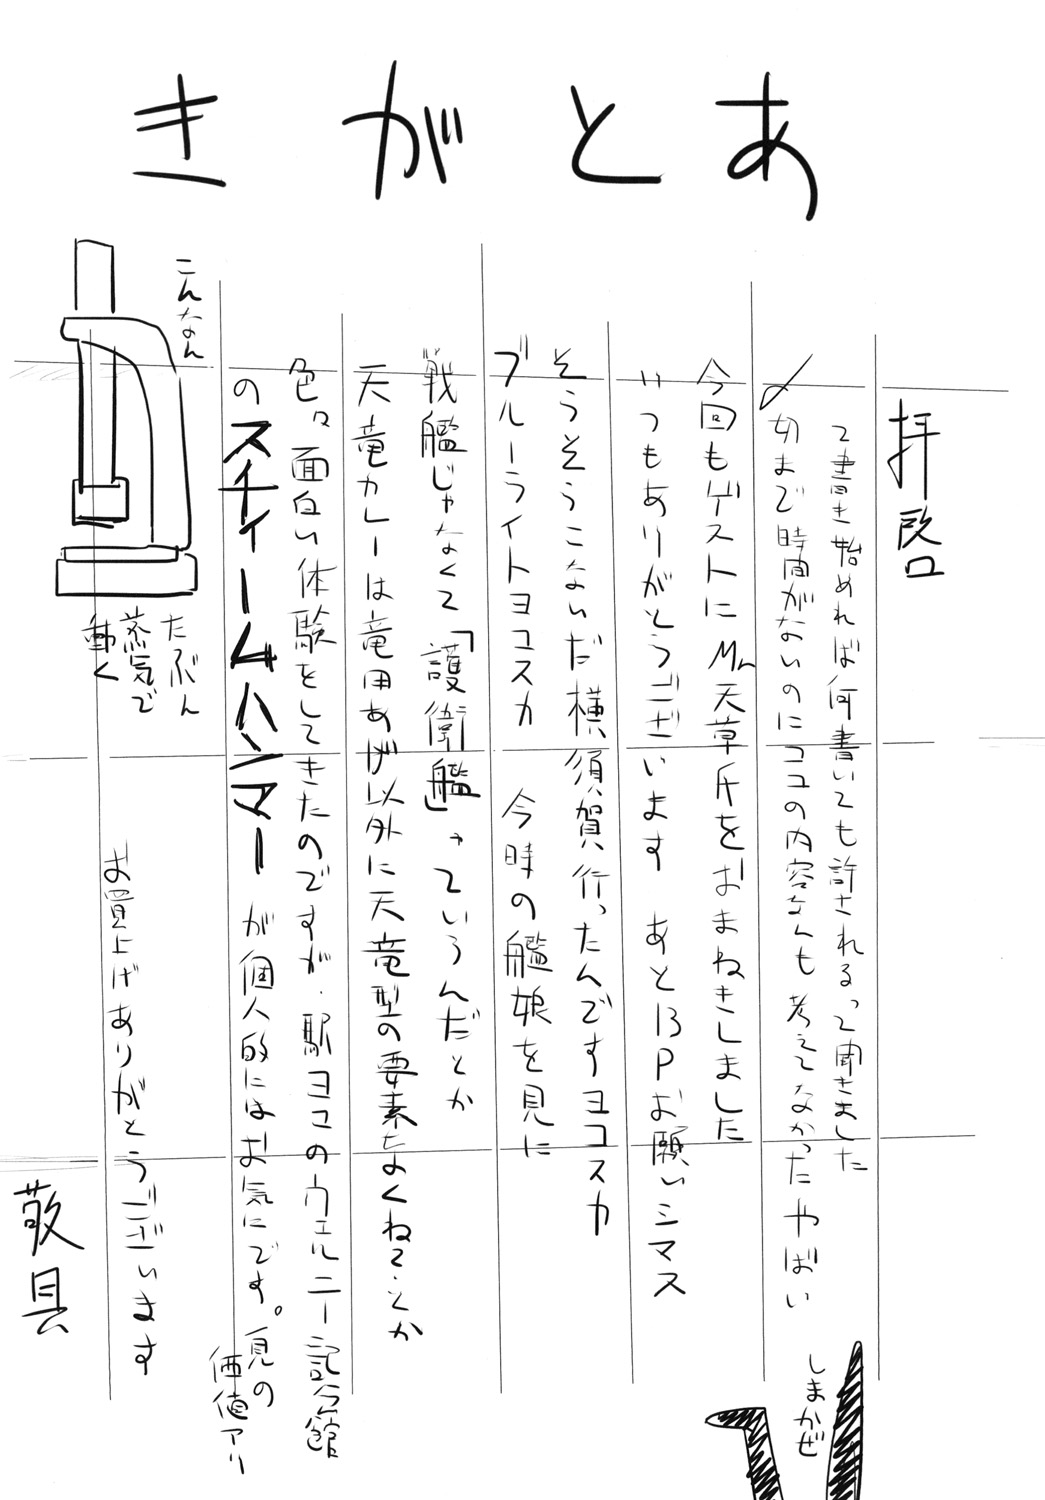 あとがき
拝啓
て書き始めれば何書いても許されるって聞きました
〆切まで時間がないのにココの内容なんも考えてなかったやばい
今回もゲストにMr天草氏をおまねきしました
いつもありがとうございます あと13Pお願いシマス
そうそうこないだ横須賀行ったんですヨコスカ
ブルーライトヨコスカ 今時の艦娘を見に
戦艦じゃなくて「護衛艦」っていうんだとか
天竜カレーは竜田あげ以外に天竜型の要素なくね?とか
色々面白い体験をしてきたのですが、駅ヨコのヴェルニー記念館
のスチームハンマーが個人的にはお気にです。見の
価値アリ
こんなん
たぶん
蒸気で
動く
お買上げありがとうございます
敬具
しまかぜ